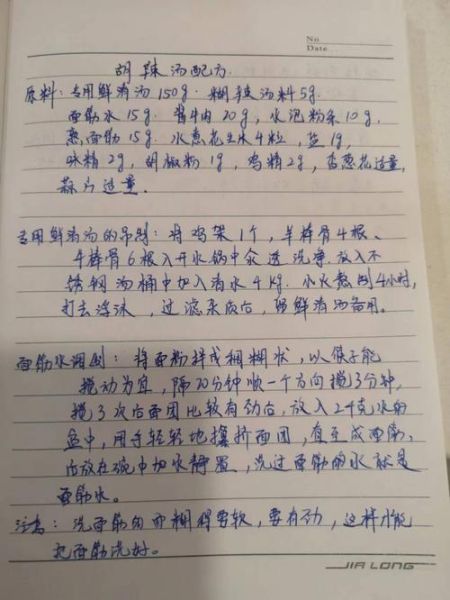 No
Date
胡辣汤配方
原料:专用鲜清汤150g. 糊辣汤料5g.
面筋水15g. 酱牛肉20g, 水泡粉条10g,
熟面筋15g. 水煮花生米4粒, 盐1g,
味精2g, 胡椒粉1g, 鸡精2g, 香葱花适量,
蒜片适量.
专用鲜清汤的吊制: 将鸡架1个, 羊棒骨4根、
牛棒骨6根入开水锅中氽透洗净,放入不
锈钢汤桶中加入清水4kg. 小火熬制4小时,
打去浮沫, 过滤杂质后, 留鲜清汤备用。
面筋水调制: 将面粉拌成稠糊状, 以筷子能
搅动为宜, 隔20分钟顺一个方向搅3分钟,
搅3次后面团比较有劲后, 放入2千克水的
盆中, 用手轻轻地揉挤面团, 直至成面筋,
后放在碗中加水静置, 洗过面筋的水就是
面筋水。
注意: 洗面筋的面糊得要软, 要有劲, 这样才能
把面筋洗好。
JIA LONG